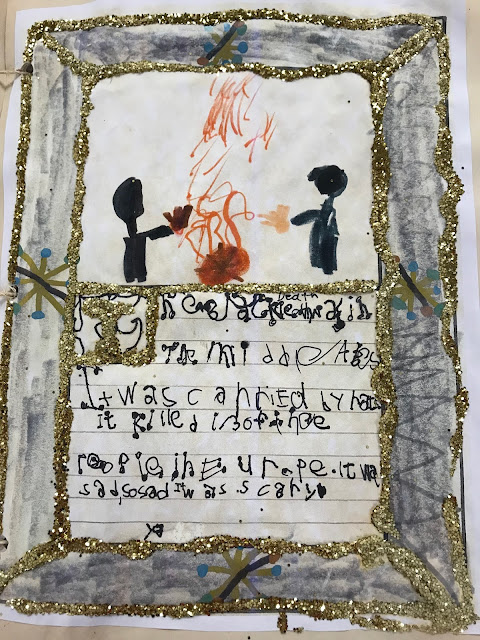 The Black Death was in
The middle Ages
It was carried by rats
It killed 1/3 of the
people in Europe. It wa
sad so sad It was scary